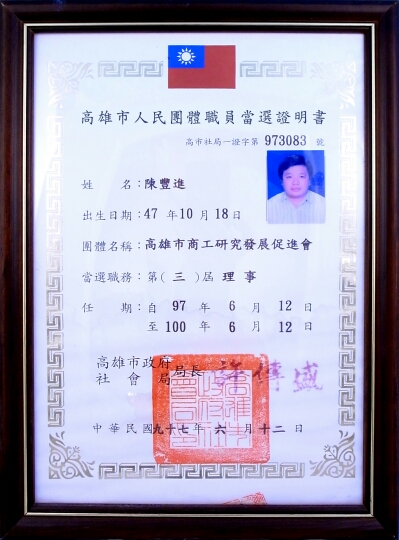 高雄市人民團體職員當選證明書
高市社局一證字第 973083 號
姓 名：陳豐進
出生日期：47 年10 月 18日
團體名稱：高雄市商工研究發展促進會
當選職務：第(三)屆 理 事
任 期：自 97 年 6 月 12 日
至 100 年 6 月 12 日
高雄市政府
社 會 局
局長 許傳盛
中華民國九十七年 六 月 十二 日